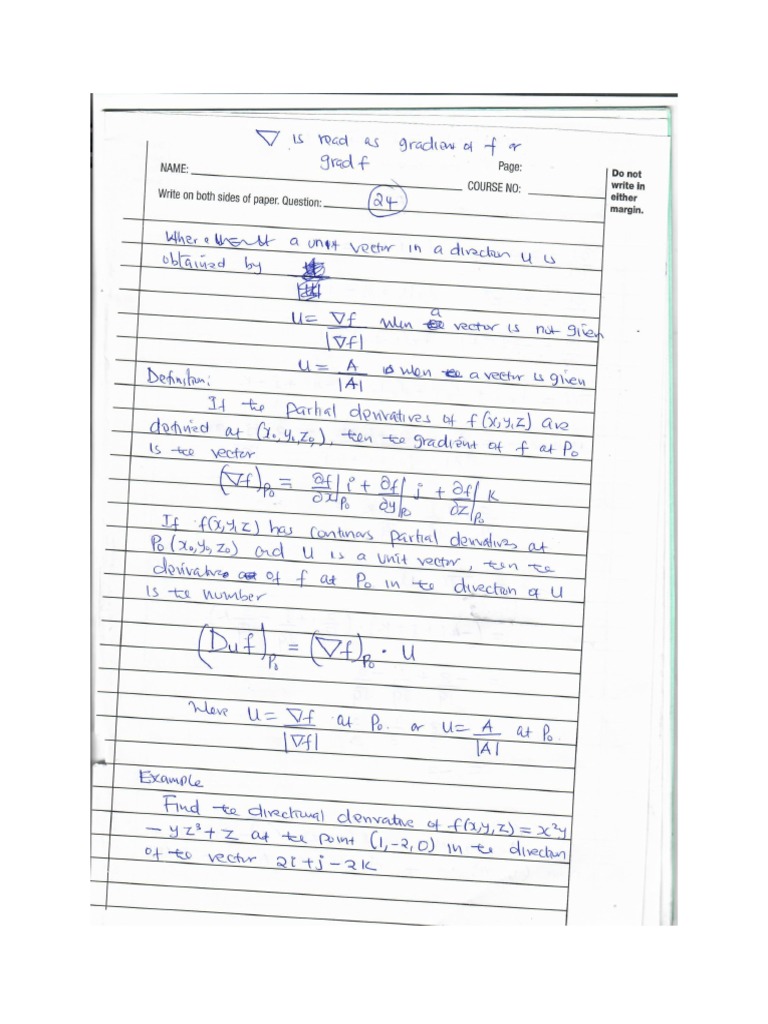 ▽ is read as gradient of f or
grad f
NAME: Page:
COURSE NO:
Write on both sides of paper. Question: 24
Do not
write in
either
margin.
Where a unit vector in a direction U is
obtained by
U = ∇f / |∇f| when a vector is not given
U = A / |A| is when a vector is given
Definition:
If the partial derivatives of f(x,y,z) are
defined at (x₀,y₀,z₀), ten te gradient of f at P₀
is te vector
(∇f)P₀ = ∂f/∂x|P₀ i + ∂f/∂y|P₀ j + ∂f/∂z|P₀ k
If f(x,y,z) has continous partial derivatives at
P₀(x₀,y₀,z₀) and U is a unit vector, ten te
derivative of f at P₀ in te direction of U
is te number
(Duf)P₀ = (∇f)P₀ · U
Were U = ∇f / |∇f| at P₀ or U = A / |A| at P₀
Example
Find te directional derivative of f(x,y,z) = x²y
− yz³ + z at te point (1,−2,0) in te direction
of te vector 2i + j − 2k